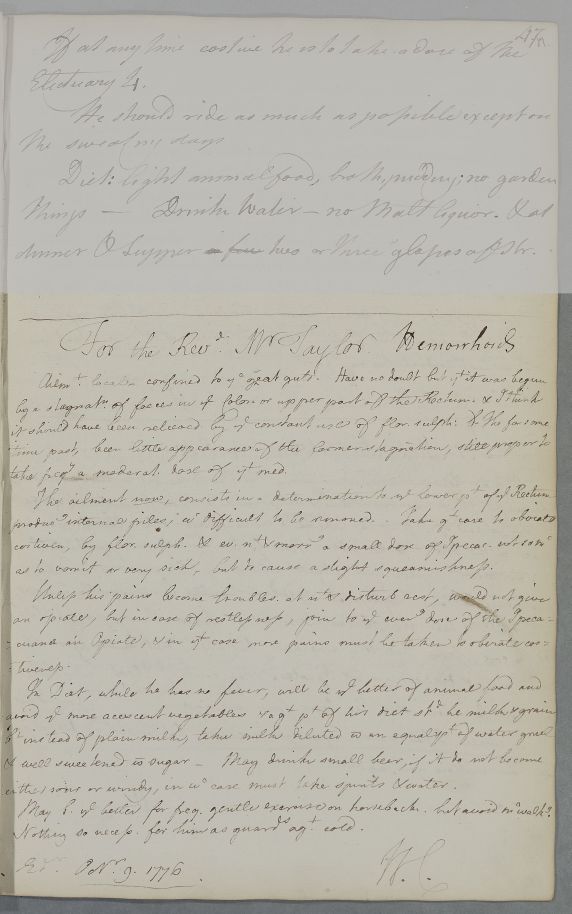 47.
If at any time costive he is to take a dose of the
Electuary 4.
He should ride as much as possible except on
the sweating days
Diet: light animal food, broth, pudding; no garden
things — Drink Water — no Malt liquor. & at
dinner & Supper a few two or three glasses of
For the Revd. Mr Taylor. Hemorrhoids
Ailmt. local & confined to ye great guts. Have no doubt but yt it was begun
by a stagnatn. of faeces in ye Colon or upper part of the Rectum. & I think
it should have been relieved by ye constant use of flor sulph: & tho for some
time past, been little appearance of the former stagnation, still proper to
take freqy a moderat dose of yt med.
The ailment now, consists in a determination to ye lower pt of ye Rectum
produc internal piles; wh difficult to be removed. Take gt care to obviate
costiven, by flor. sulph. & ev. nt & morng a small dose of Ipecac. not so mh
as to vomit or very sick, but to cause a slight squeamishness.
Unless his pains become troubles. at nt & disturb rest, would not give
an opiate, but in case of restlessness, join to ye eveng dose of the Ipeca-
cuana an Opiate, & in yt case more pains must be taken to obviate cos-
tiveness.
In Diet, while he has no fever, will be ye better of animal food and
avoid ye more acescent vegetables & a gt pt of his diet shd be milk & grain
bt instead of plain milk, take milk diluted wt an equal pt of water gruel
& well sweetened wt sugar — May drink small beer, if it do not become
either sour or windy, in wh case must take spirits & water.
May b. ye better for freq. gentle exercise on horseback. but avoid mh walkg.
Nothing so necess. for him as guardg agt cold.
Edr. Octr. 9. 1776. W. C.